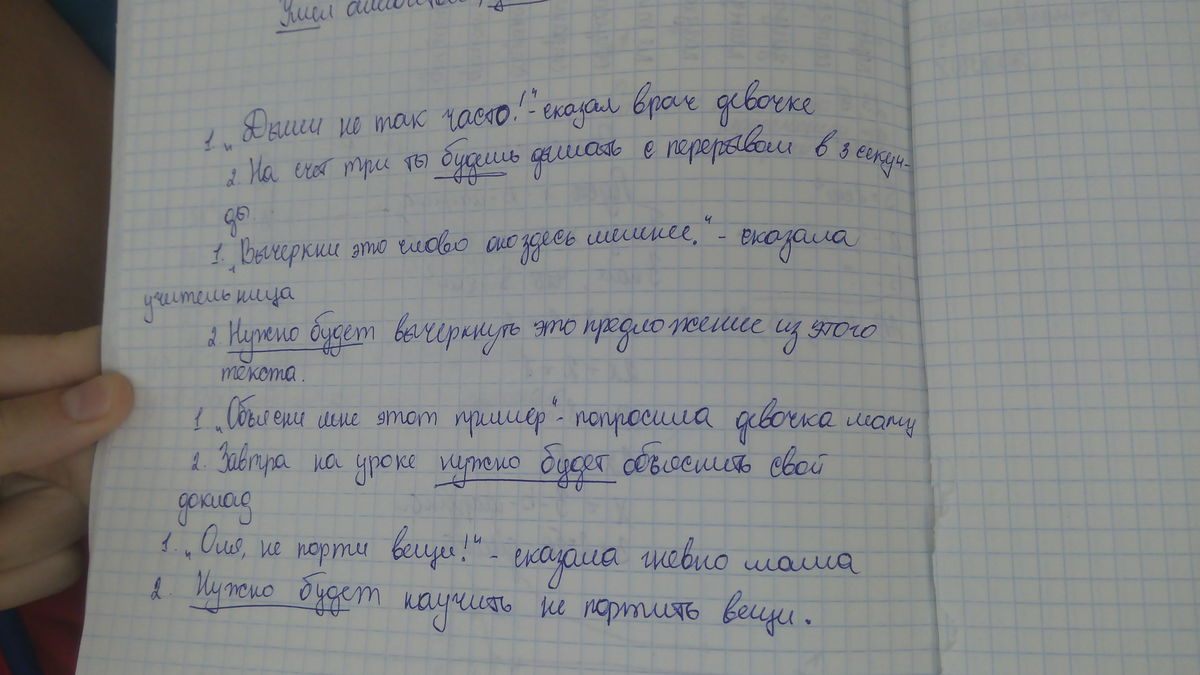 1. „Дыши не так часто!"- сказал врач девочке
2. На счёт три ты будешь дышать с перерывом в 3 секун-
ды.
1. „Вычеркни это слово оно здесь лишнее." - сказала
учительница
2. Нужно будет вычеркнуть это предложение из этого
текста.
1 „Объясни мне этот пример"- попросила девочка маму
2. Завтра на уроке нужно будет объяснить свой
доклад
1. „Оля, не порти вещи!" - сказала гневно мама
2. Нужно будет научить не портить вещи.